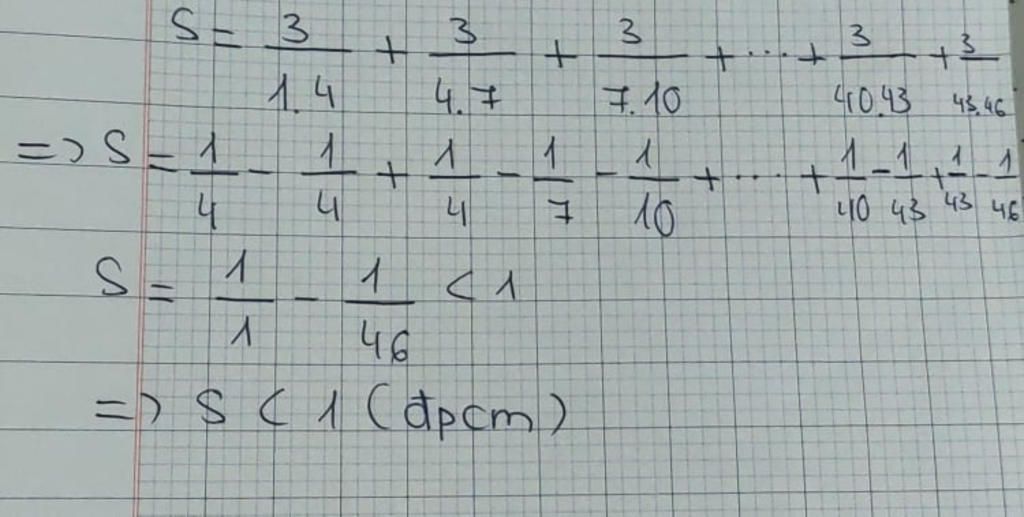 S = 3/1.4 + 3/4.7 + 3/7.10 + ... + 3/40.43 + 3/43.46
=> S = 1/4 - 1/4 + 1/4 - 1/7 - 1/10 + ... + 1/40 - 1/43 + 1/43 - 1/46
S = 1/1 - 1/46 < 1
=> S < 1 (đpcm)